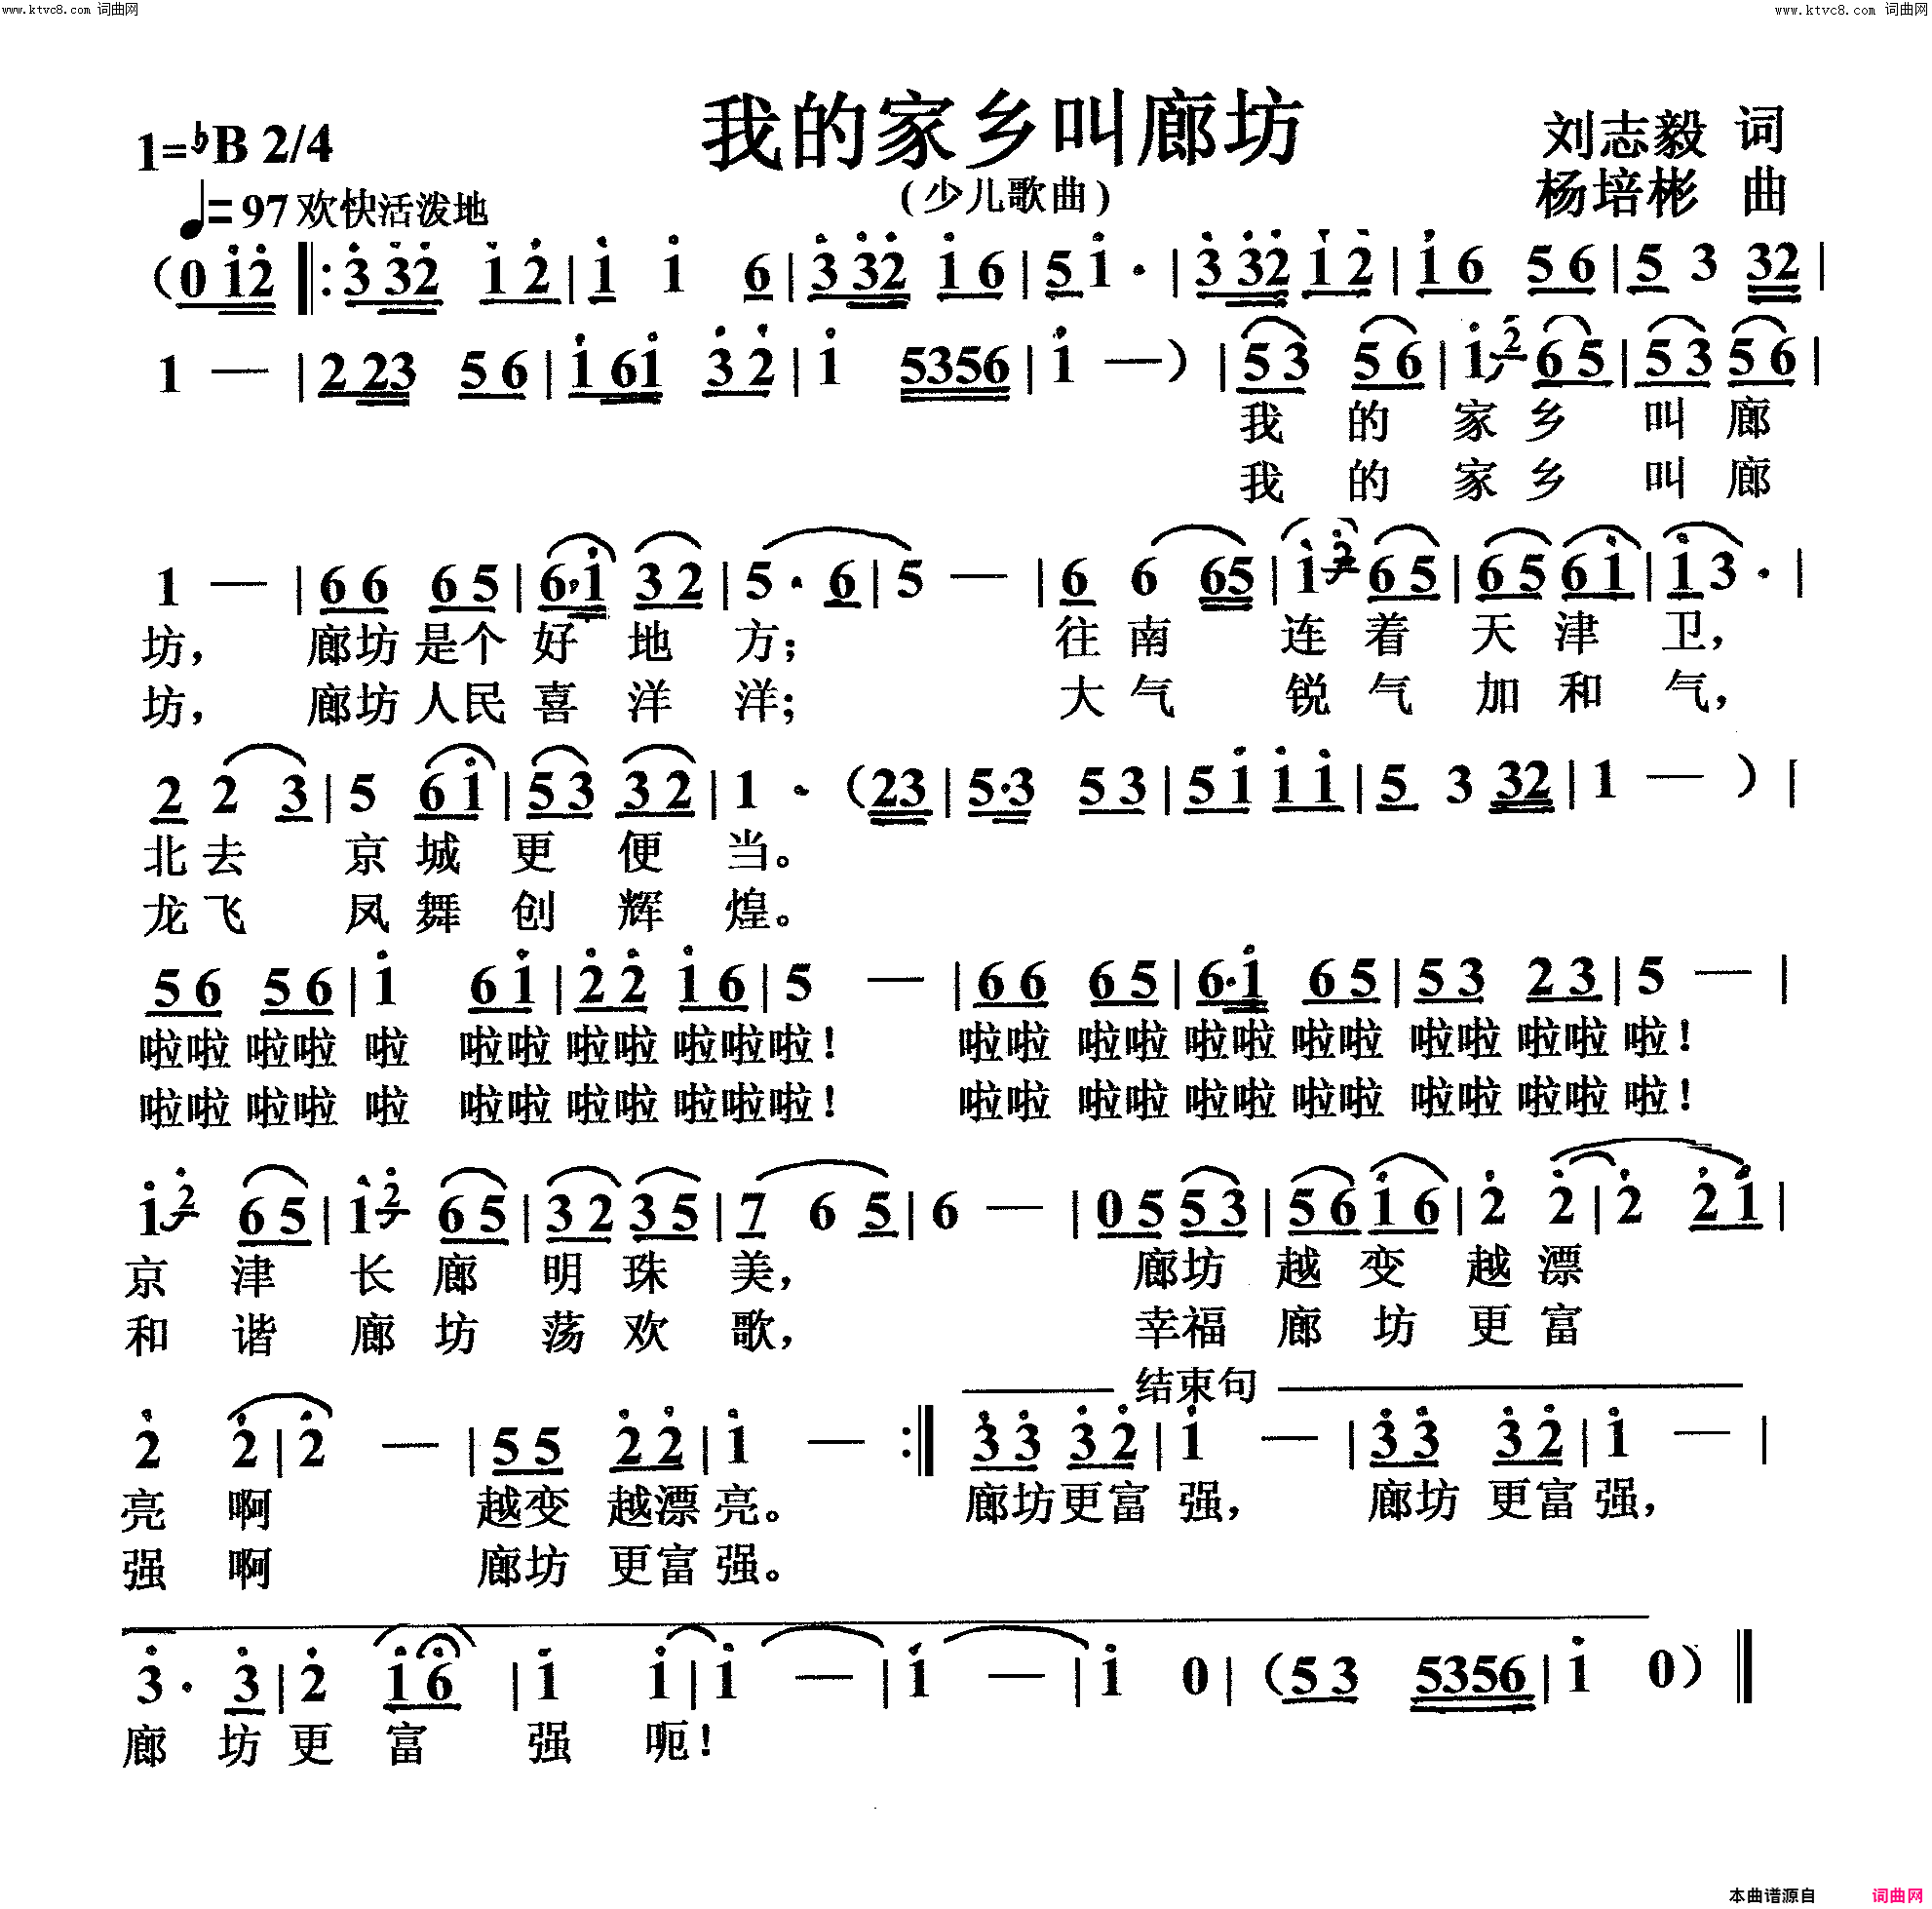 www.ktvc8.com 词曲网
www.ktvc8.com 词曲网
我的家乡叫廊坊
1=♭B 2/4
刘志毅 词
(少儿歌曲)
杨培彬 曲
♩=97 欢快活泼地
(0 i̇2̇ ‖: 3̇ 3̇2̇ i̇ 2̇ | i̇ i̇ 6 | 3̇ 3̇2̇ i̇ 6 | 5 i̇ · | 3̇ 3̇2̇ i̇ 2̇ | i̇ 6 5 6 | 5 3 32 |
1 — | 2 23 5 6 | i̇ 6i̇ 3̇ 2̇ | i̇ 5356 | i̇ — ) | 5 3 5 6 | i̇ 2̇ 6 5 | 5 3 5 6 |
我 的 家 乡 叫 廊
我 的 家 乡 叫 廊
1 — | 6 6 6 5 | 6· i̇ 3 2 | 5 · 6 | 5 — | 6 6 65 | i̇ 2̇ 6 5 | 6 5 6 i̇ | i̇ 3 · |
坊, 廊坊是个 好 地 方; 往 南 连 着 天 津 卫,
坊, 廊坊人民 喜 洋 洋; 大 气 锐 气 加 和 气,
2 2 3 | 5 6 i̇ | 5 3 3 2 | 1 · (23 | 5·3 5 3 | 5 i̇ i̇ i̇ | 5 3 32 | 1 — ) |
北 去 京 城 更 便 当。
龙 飞 凤 舞 创 辉 煌。
5 6 5 6 | i̇ 6 i̇ | 2̇ 2̇ i̇ 6 | 5 — | 6 6 6 5 | 6· i̇ 6 5 | 5 3 2 3 | 5 — |
啦啦 啦啦 啦 啦啦 啦啦 啦啦啦! 啦啦 啦啦 啦啦 啦啦 啦啦 啦啦 啦!
啦啦 啦啦 啦 啦啦 啦啦 啦啦啦! 啦啦 啦啦 啦啦 啦啦 啦啦 啦啦 啦!
i̇ 2̇ 6 5 | i̇ 2̇ 6 5 | 3 2 3 5 | 7 6 5 | 6 — | 0 5 5 3 | 5 6 i̇ 6 | 2̇ 2̇ | 2̇ 2̇ i̇ |
京 津 长 廊 明 珠 美, 廊坊 越 变 越 漂
和 谐 廊 坊 荡 欢 歌, 幸福 廊 坊 更 富
结束句
2̇ 2̇ | 2̇ — | 5 5 2̇ 2̇ | i̇ — :‖ 3̇ 3̇ 3̇ 2̇ | i̇ — | 3̇ 3̇ 3̇ 2̇ | i̇ — |
亮 啊 越变 越漂亮。 廊坊更富 强, 廊坊 更富强,
强 啊 廊坊 更富强。
3̇ · 3̇ | 2̇ i̇ 6 | i̇ i̇ | i̇ — | i̇ — | i̇ 0 | (5 3 5356 | i̇ 0 ) ‖
廊 坊 更 富 强 呃!
本曲谱源自 词曲网